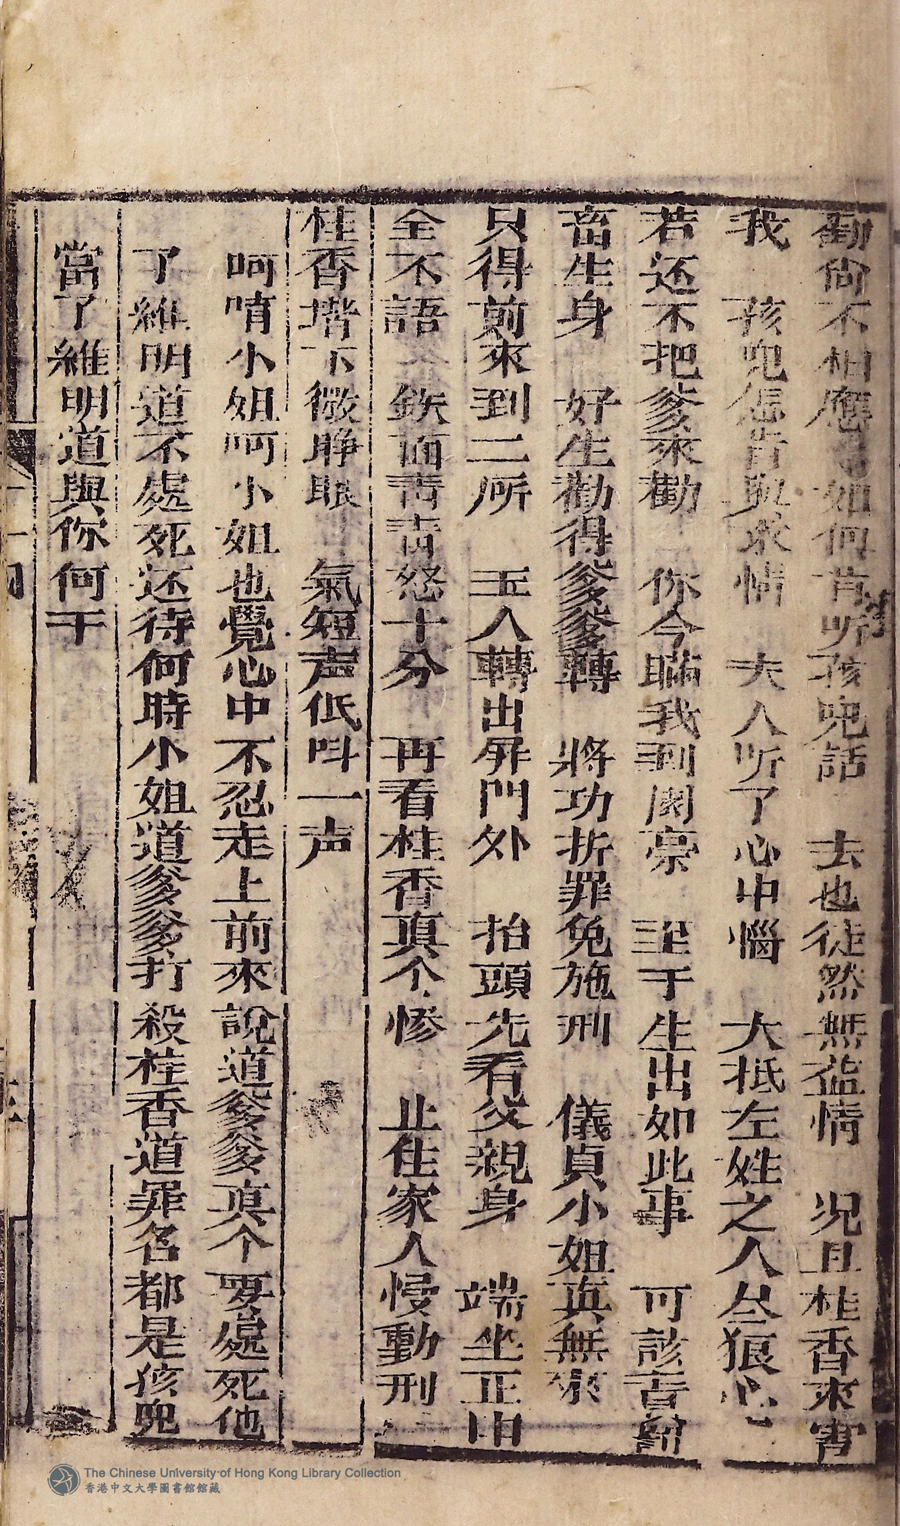 勸尙不相應 如何肯听孩兜話 去也徒然無益情 况且桂香來害
我 孩兜怎肯與求情 夫人听了心中惱 大抵左姓之人叁狼心
若还不把爹來勸 你今瞞我到園亭 至于生出如此事 可該
畜生身 好生勸得爹爹轉 將功折罪免施刑 儀貞小姐真無奈
只得前來到二所 五人轉出屏門外 抬頭先看父親身 端坐正中
全不語 鉄面青青怒十分 再看桂香真个惨 止住家人慢動刑
桂香堦下微睁眼 氣短声低呌一声
呵唷小姐呵小姐也覺心中不忍走上前來說道爹爹真个要處死他
了維明道不處死还待何時小姐道爹爹打殺桂香道罪名都是孩兜
當了維明道與你何干
The Chinese University of Hong Kong Library Collection
香港中文大學圖書館館藏